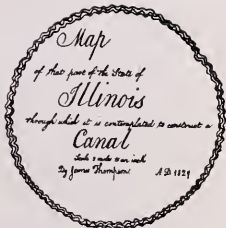 Map
of that part of the State of
Illinois
through which it is contemplated to construct a
Canal
Scale 2 miles to an inch
By James Thompson A.D. 1829